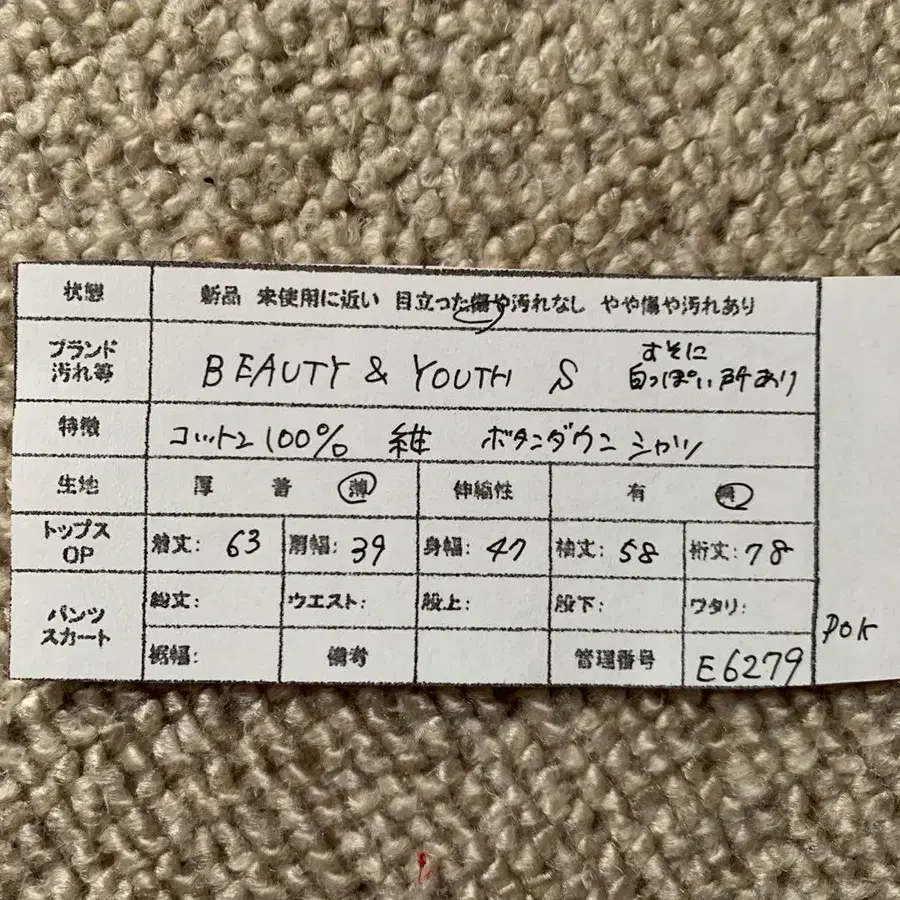 状態 新品 未使用に近い 目立った傷や汚れなし やや傷や汚れあり
ブランド
汚れ等
BEAUTY & YOUTH S
すそに
白っぽい所あり
特徴 コットン100% 紺 ボタンダウンシャツ
生地 厚 普 薄 伸縮性 有 無
トップス
OP
着丈: 63 肩幅: 39 身幅: 47 袖丈: 58 裄丈: 78
パンツ
スカート
総丈: ウエスト: 股上: 股下: ワタリ:
裾幅: 備考 管理番号 E6279
POK